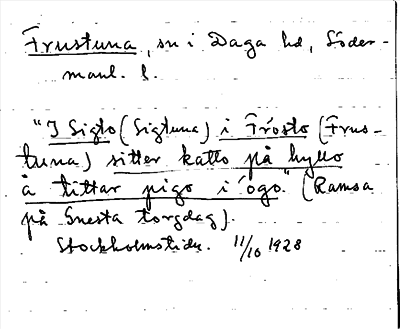 Frustuna, sn i Daga hd, Söder-
manl. l.
"I Sigto (Sigtuna) i Frósto (Frus-
tuna) sitter katto på hyllo
å tittar pigo i ögo." (Ramsa
på Gnesta torgdag).
Stockholmstidn. 11/10 1928